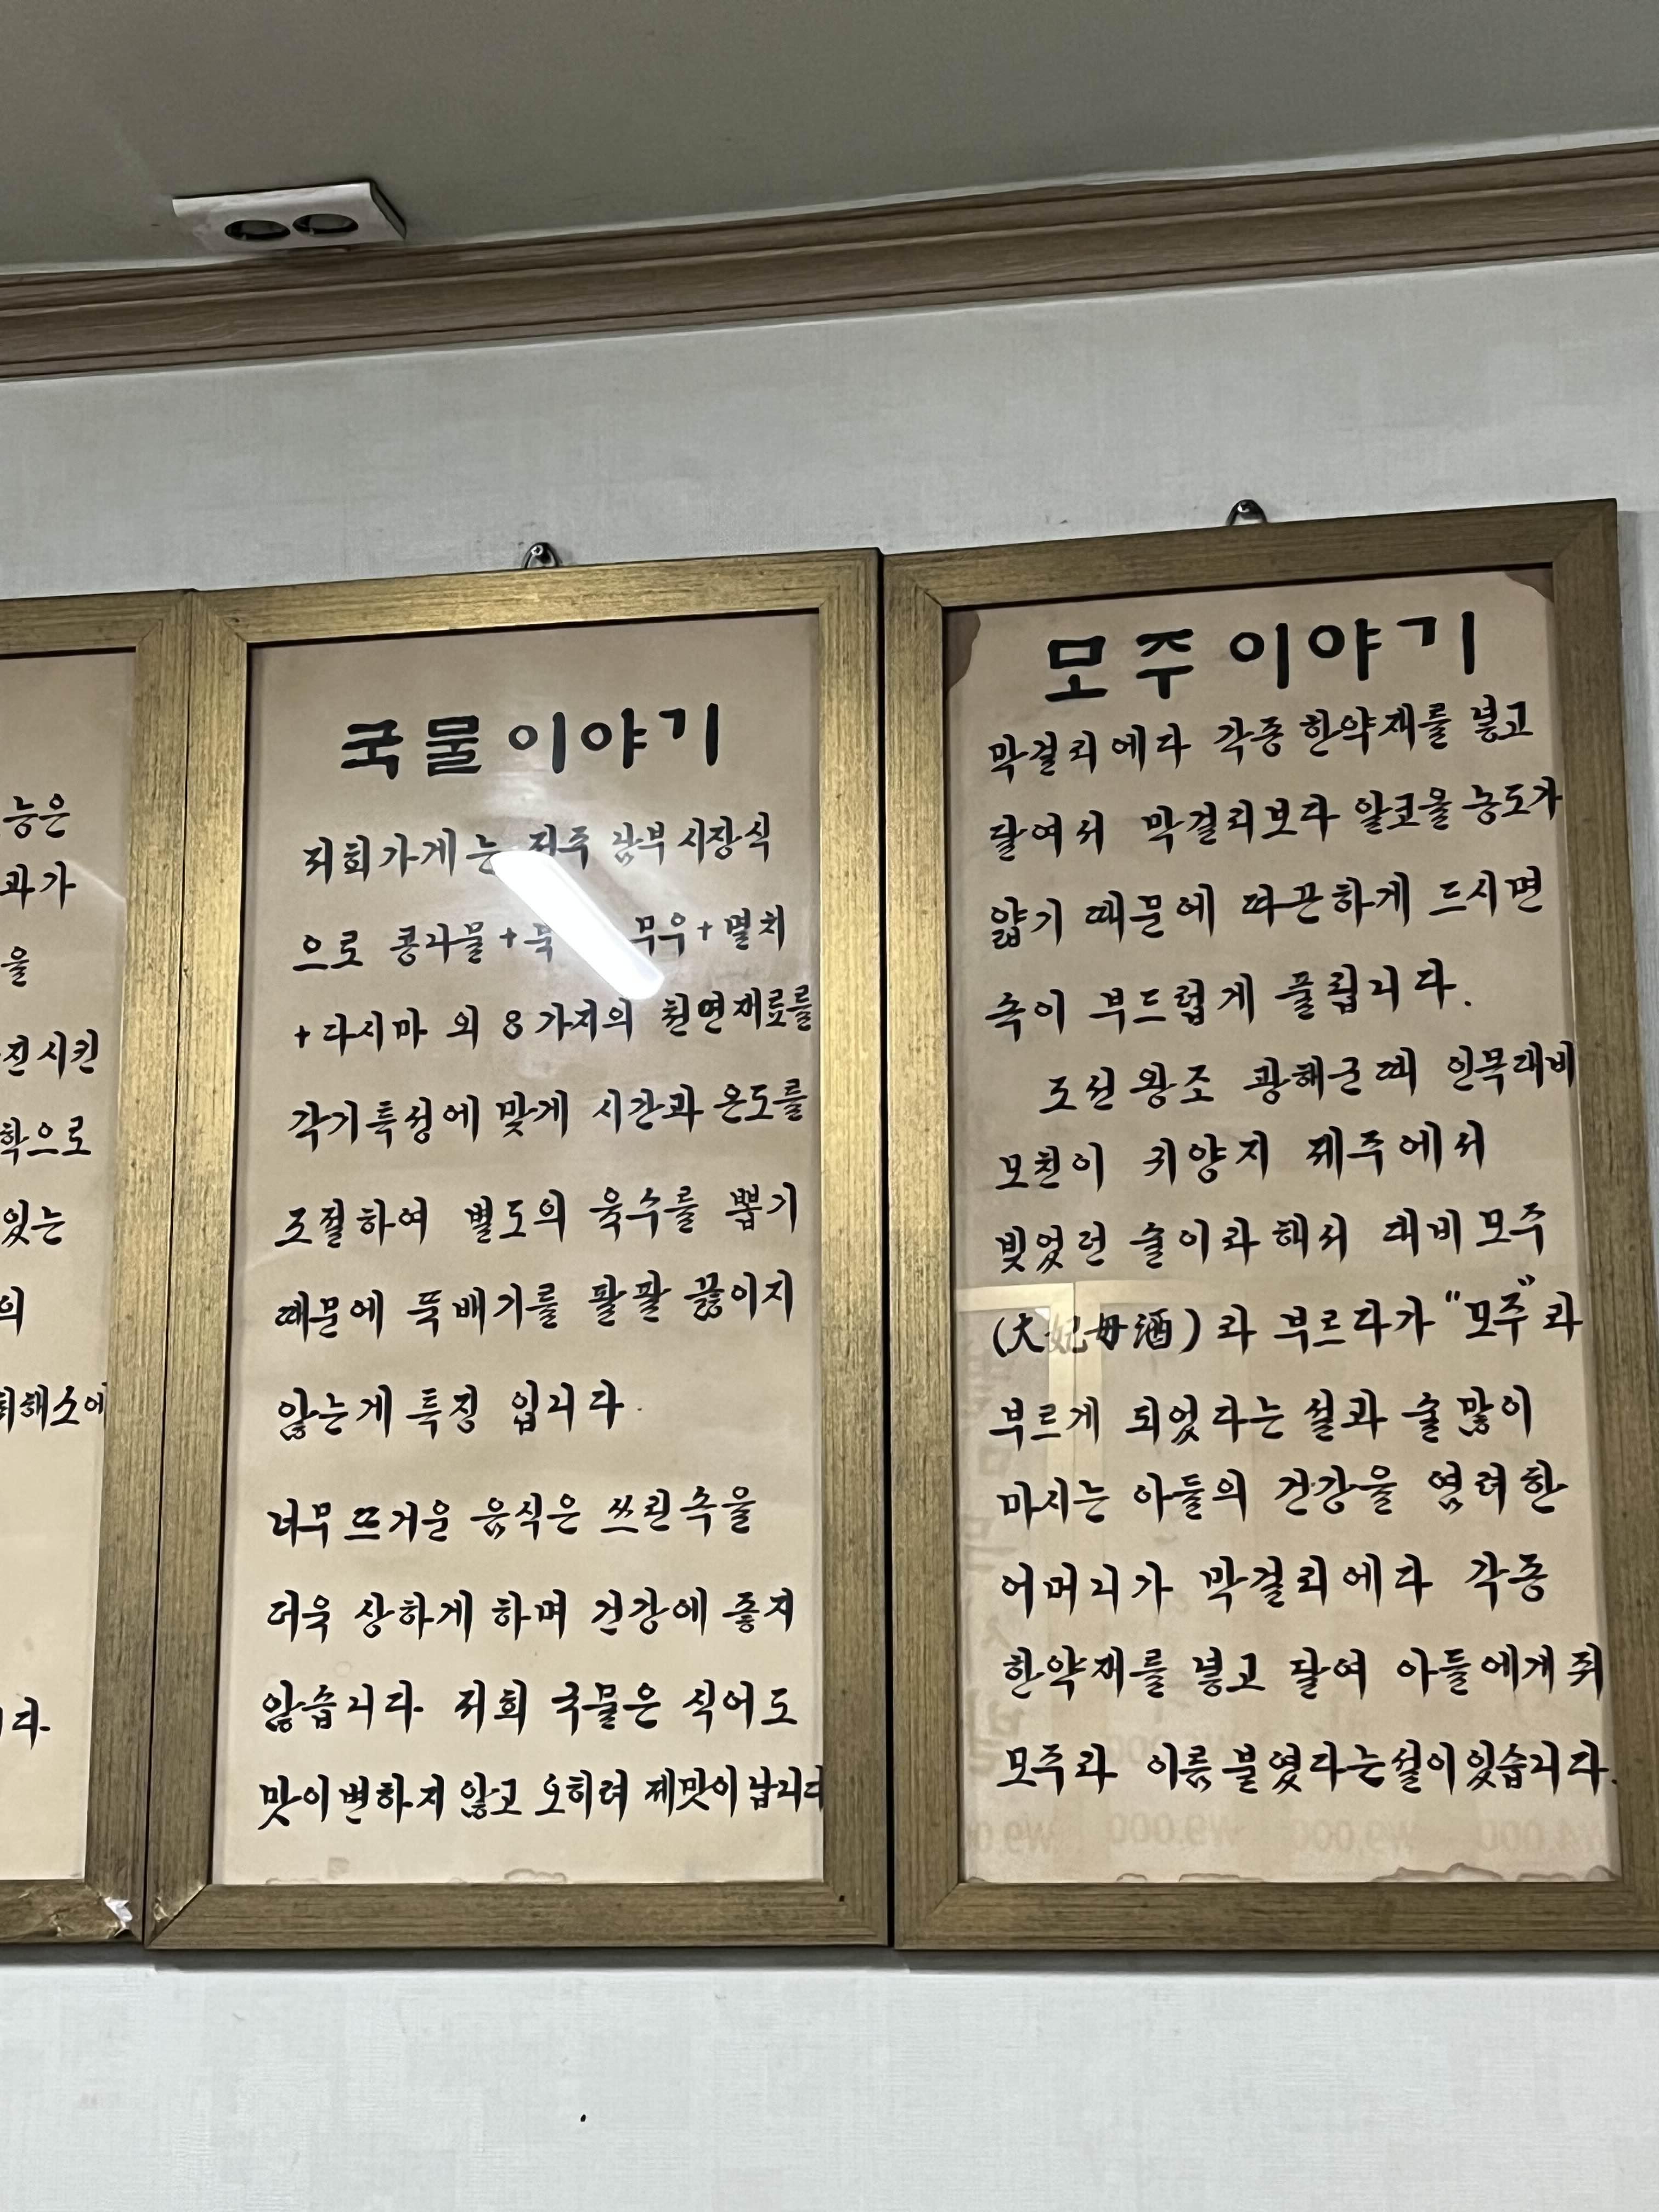 능은
과가
을
진시킨
학으로
있는
의
취해소에
니다
국물이야기
저희가게는 전주 남부시장식
으로 콩나물+북 무우+멸치
+다시마 외 8가지의 천연재료를
각기특성에 맞게 시간과 온도를
조절하여 별도의 육수를 뽑기
때문에 뚝배기를 팔팔 끓이지
않는게 특징 입니다.
너무 뜨거운 음식은 쓰린속을
더욱 상하게 하며 건강에 좋지
않습니다 저희 국물은 식어도
맛이변하지 않고 오히려 제맛이납니다
모주이야기
막걸리에다 각종한약재를 넣고
달여서 막걸리보다 알코올농도가
얇기 때문에 따끈하게 드시면
속이 부드럽게 풀립니다.
조선왕조 광해군때 인목대비
모친이 귀양지 제주에서
빚었던 술이라해서 대비모주
(大妃母酒)라 부르다가 "모주"라
부르게 되었다는설과 술많이
마시는 아들의 건강을 염려한
어머니가 막걸리에다 각종
한약재를 넣고 달여 아들에게줘
모주라 이름붙였다는설이있습니다.